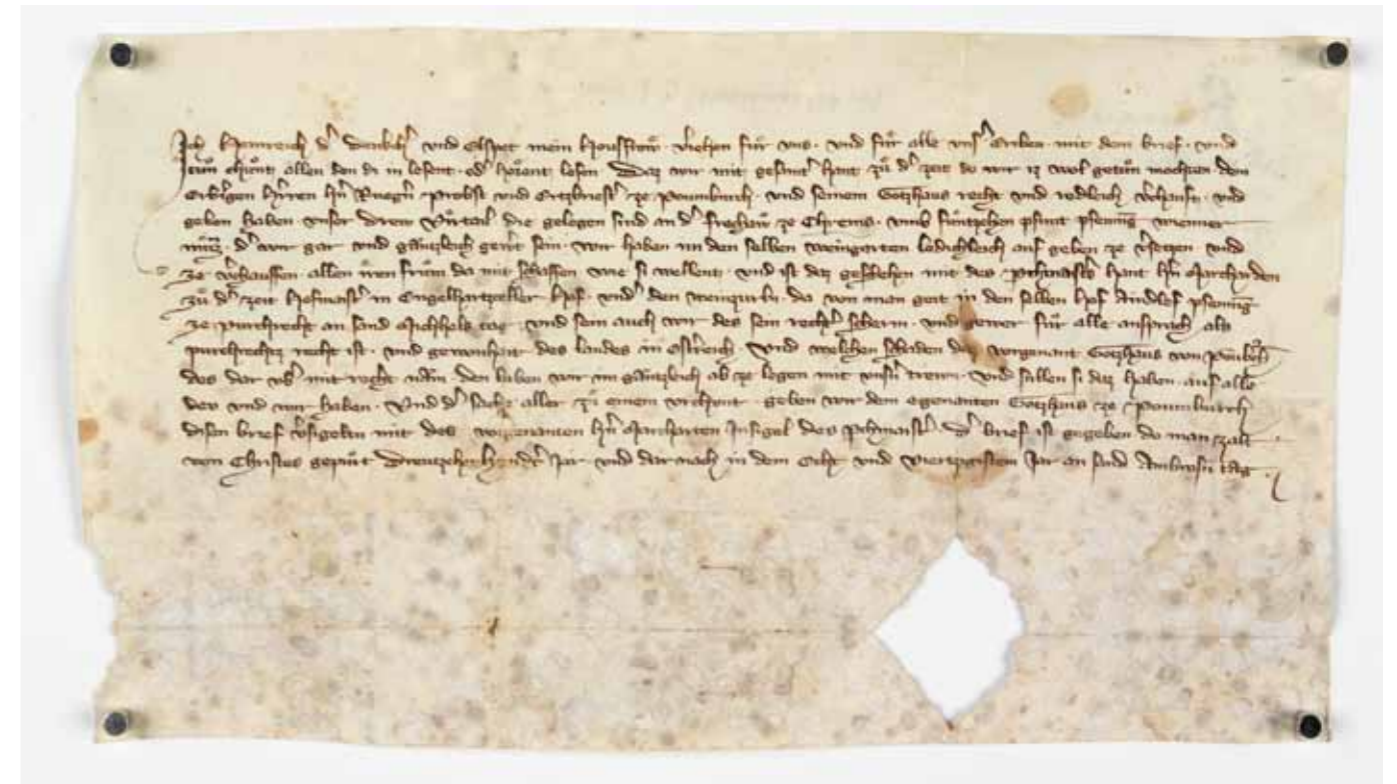 Ich Heinreich d' und Elspet mein Housfrow v'iehen für vns · vnd für alle vns' Erben mit dem brief · vnd
tun chunt allen den di in lesent · od' hörent lesen · Daz wir mit gesampt' hant zů d' zeit do wir iz wol getůn mochten dem
Erb'gen h'ren h'n Rueg'n Probst vnd Ertzbriest' ze Poumburch · vnd seinem Gotzhaus recht vnd redleich v'chauft · vnd
geben haben vnser drew die gelegen sind an d' ze Chrems · vmb fünfzehen pfunt pfenning wienner
můzz · d' wir gar vnd gäntzleich gew't sein · wir haben im den selben weingarten ledichleich auf geben ze v'setzen vnd
ze v'chauffen allen iren frům da mit schaffen wie si wellent · vnd ist daz geschehen mit des hant h'n Marcharden
zů d' zeit Hofmaist' in Engelhartzeller hof · vnd' den do von man geit in den selben hof Aindlef pfenning
ze purchrecht an sand Michhels tag · vnd sein auch wir des sein recht' scherm · vnd gewer für alle ansprach als
purchrechtz recht ist · vnd gewonhait des landes in Ostreich · Vnd welchen schaden daz vorgenant Gotzhaus von
des dar mit recht näm · den haben wir im gäntzleich ab ze legen mit vnsern trewn · Vnd sullen si daz haben auf alle
dev vnd wir haben · Vnd d' sache aller zů einem vrchunt geben wir dem egenanten Gotzhaus ze Poumburch
disen brief v'sigelten mit des vorgenanten h'n Marcharten Insigel des · D' brief ist gegeben do man zalt
von Christes gepůrt Drewzehen hund't Jar · vnd dar nach in dem Echt vnd viertzgistem Jar an sand Ambrosii tag ·